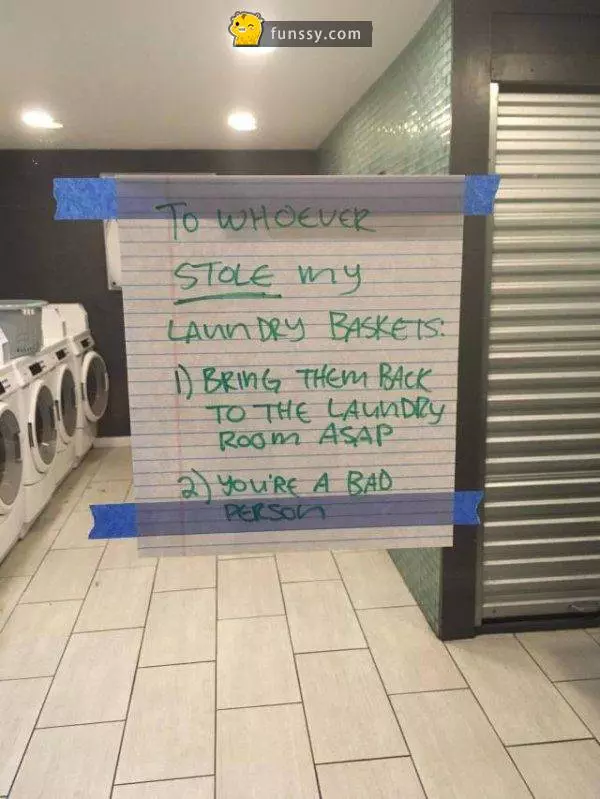 funssy.com
TO WHOEVER
STOLE my
LAUNDRY BASKETS:
1) BRING THEM BACK
TO THE LAUNDRY
ROOM ASAP
2) YOU'RE A BAD
PERSON